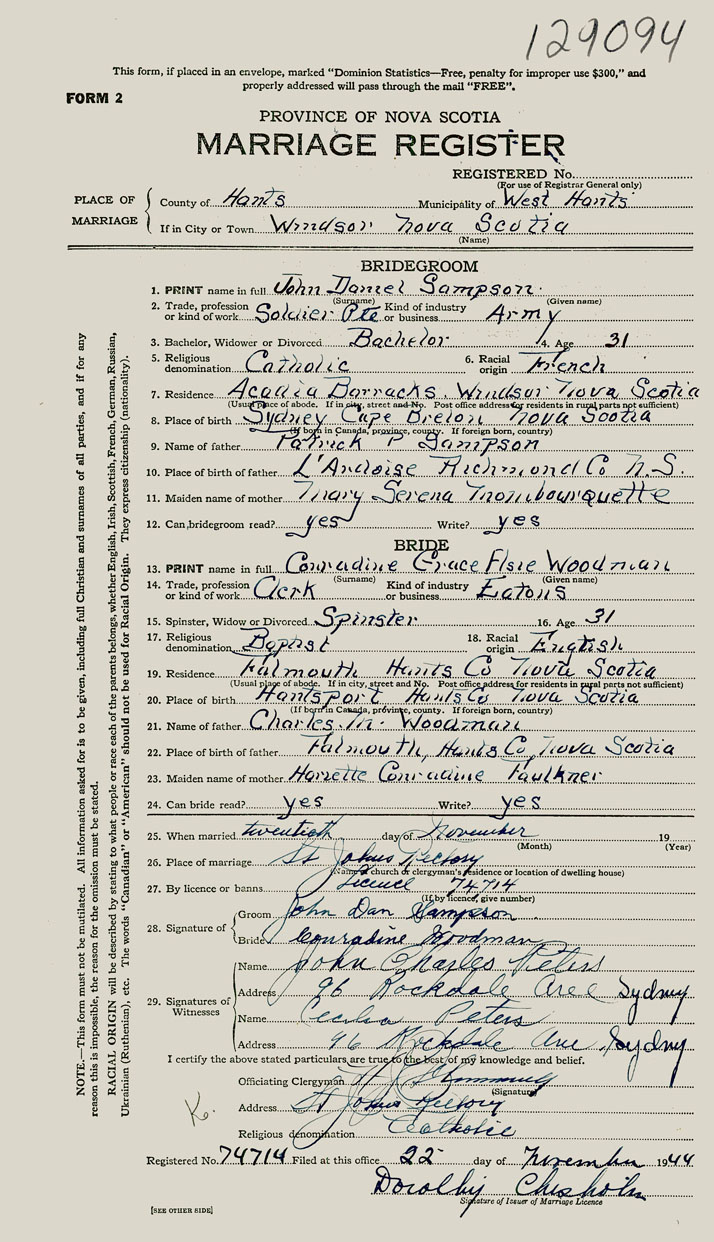 129094
This form, if placed in an envelope, marked "Dominion Statistics—Free, penalty for improper use $300," and
properly addressed will pass through the mail "FREE".
FORM 2
PROVINCE OF NOVA SCOTIA
MARRIAGE REGISTER
REGISTERED No.
(For use of Registrar General only)
PLACE OF MARRIAGE
County of Hants Municipality of West Hants
If in City or Town Windsor Nova Scotia
(Name)
BRIDEGROOM
1. PRINT name in full John Daniel Sampson
(Surname) (Given name)
2. Trade, profession or kind of work Soldier Pte Kind of industry or business Army
3. Bachelor, Widower or Divorced Bachelor 4. Age 31
5. Religious denomination Catholic 6. Racial origin French
7. Residence Acadia Barracks Windsor Nova Scotia
(Usual place of abode. If in city, street and No. Post office address for residents in rural parts not sufficient)
8. Place of birth Sydney Cape Breton Nova Scotia
(If born in Canada, province, county. If foreign born, country)
9. Name of father Patrick P Sampson
10. Place of birth of father L'Ardoise Richmond Co N.S.
11. Maiden name of mother Mary Serena Mombourquette
12. Can bridegroom read? yes Write? yes
BRIDE
13. PRINT name in full Conradine Grace Elsie Woodman
(Surname) (Given name)
14. Trade, profession or kind of work Clerk Kind of industry or business Eatons
15. Spinster, Widow or Divorced Spinster 16. Age 31
17. Religious denomination Baptist 18. Racial origin English
19. Residence Falmouth Hants Co Nova Scotia
(Usual place of abode. If in city, street and No. Post office address for residents in rural parts not sufficient)
20. Place of birth Hantsport Hants Co Nova Scotia
(If born in Canada, province, county. If foreign born, country)
21. Name of father Charles M. Woodman
22. Place of birth of father Falmouth, Hants Co, Nova Scotia
23. Maiden name of mother Harriette Conradine Faulkner
24. Can bride read? yes Write? yes
25. When married twentieth day of November 19
(Month) (Year)
26. Place of marriage St Johns Rectory
(Name of church or clergyman's residence or location of dwelling house)
27. By licence or banns Licence 74714
(If by licence, give number)
28. Signature of
Groom John Dan Sampson
Bride Conradine Woodman
29. Signatures of Witnesses
Name John Charles Peters
Address 96 Rockdale Ave Sydney
Name Cecilia Peters
Address 96 Rockdale Ave, Sydney
I certify the above stated particulars are true to the best of my knowledge and belief.
Officiating Clergyman
(Signature)
Address St Johns Rectory
Religious denomination Catholic
K.
Registered No. 74714 Filed at this office 22 day of November 1944
Dorothy Chisholm
Signature of Issuer of Marriage Licence
[SEE OTHER SIDE]
NOTE.—This form must not be mutilated. All information asked for is to be given, including full Christian and surnames of all parties, and if for any
reason this is impossible, the reason for the omission must be stated.
RACIAL ORIGIN will be described by stating to what people or race each of the parents belongs, whether English, Irish, Scottish, French, German, Russian,
Ukrainian (Ruthenian), etc. The words "Canadian" or "American" should not be used for Racial Origin. They express citizenship (nationality).